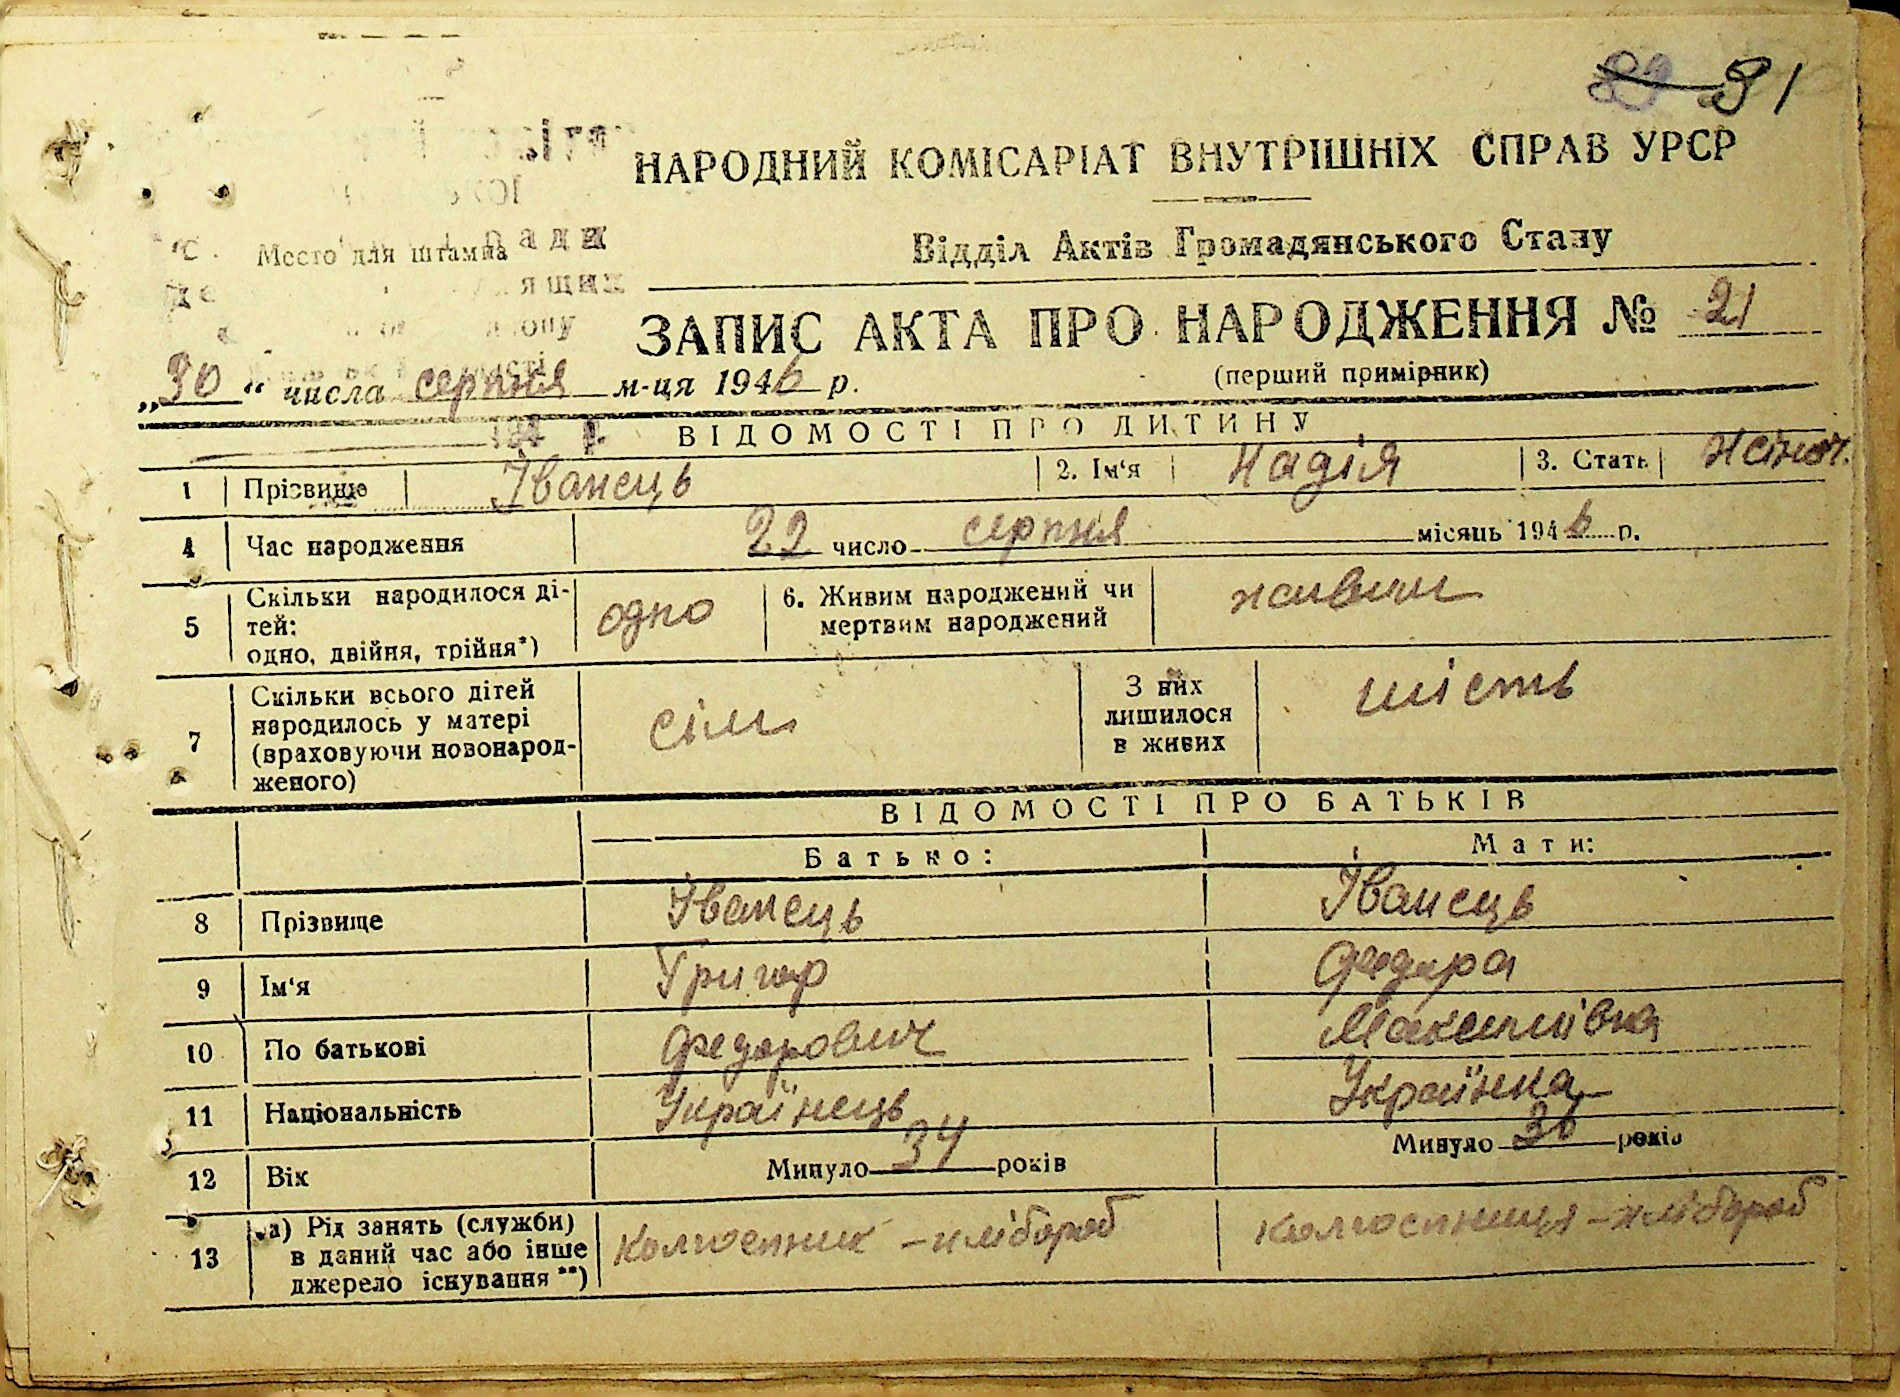 31
НАРОДНИЙ КОМІСАРІАТ ВНУТРІШНІХ СПРАВ УРСР
Место для штампа
Відділ Актів Громадянського Стану
ЗАПИС АКТА ПРО НАРОДЖЕННЯ № 21
(перший примірник)
„30" числа серпня м-ця 1946 р.
ВІДОМОСТІ ПРО ДИТИНУ
1 Прізвище Іванець 2. Ім'я Надія 3. Стать жіноч.
4 Час народження 22 число серпня місяць 1946 р.
5 Скільки народилося ді-
тей:
одно, двійня, трійня*) одно 6. Живим народжений чи
мертвим народжений живим
7 Скільки всього дітей
народилось у матері
(враховуючи новонарод-
женого) сім З них
лишилося
в живих шість
ВІДОМОСТІ ПРО БАТЬКІВ
Батько: Мати:
8 Прізвище Іванець Іванець
9 Ім'я Григор Федора
10 По батькові Федорович Максимівна
11 Національність Українець Українка
12 Вік Минуло 34 років Минуло 36 років
13 а) Рід занять (служби)
в даний час або інше
джерело існування **) колгоспник - хлібороб колгоспниця - хлібороб